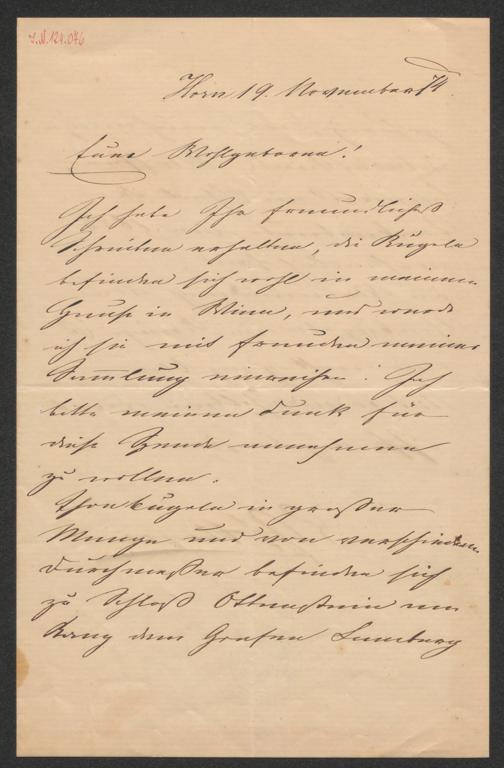 I.N. 124.076
Horn 19. November 74.
Euer Wohlgeboren!
Ich habe Ihr freundliches
Schreiben erhalten, die Kugeln
befinden sich wohl in meinem
Hause in Wien, und werde
ich sie mit Freuden meiner
Sammlung einreihen. Ich
bitte meinen Dank für
diese Spende annehmen
zu wollen.
Thonkugeln in grosser
Menge und von verschiedenem
Durchmesser befinden sich
zu Schloß Ottenstein am
Kamp dem Grafen Lamberg